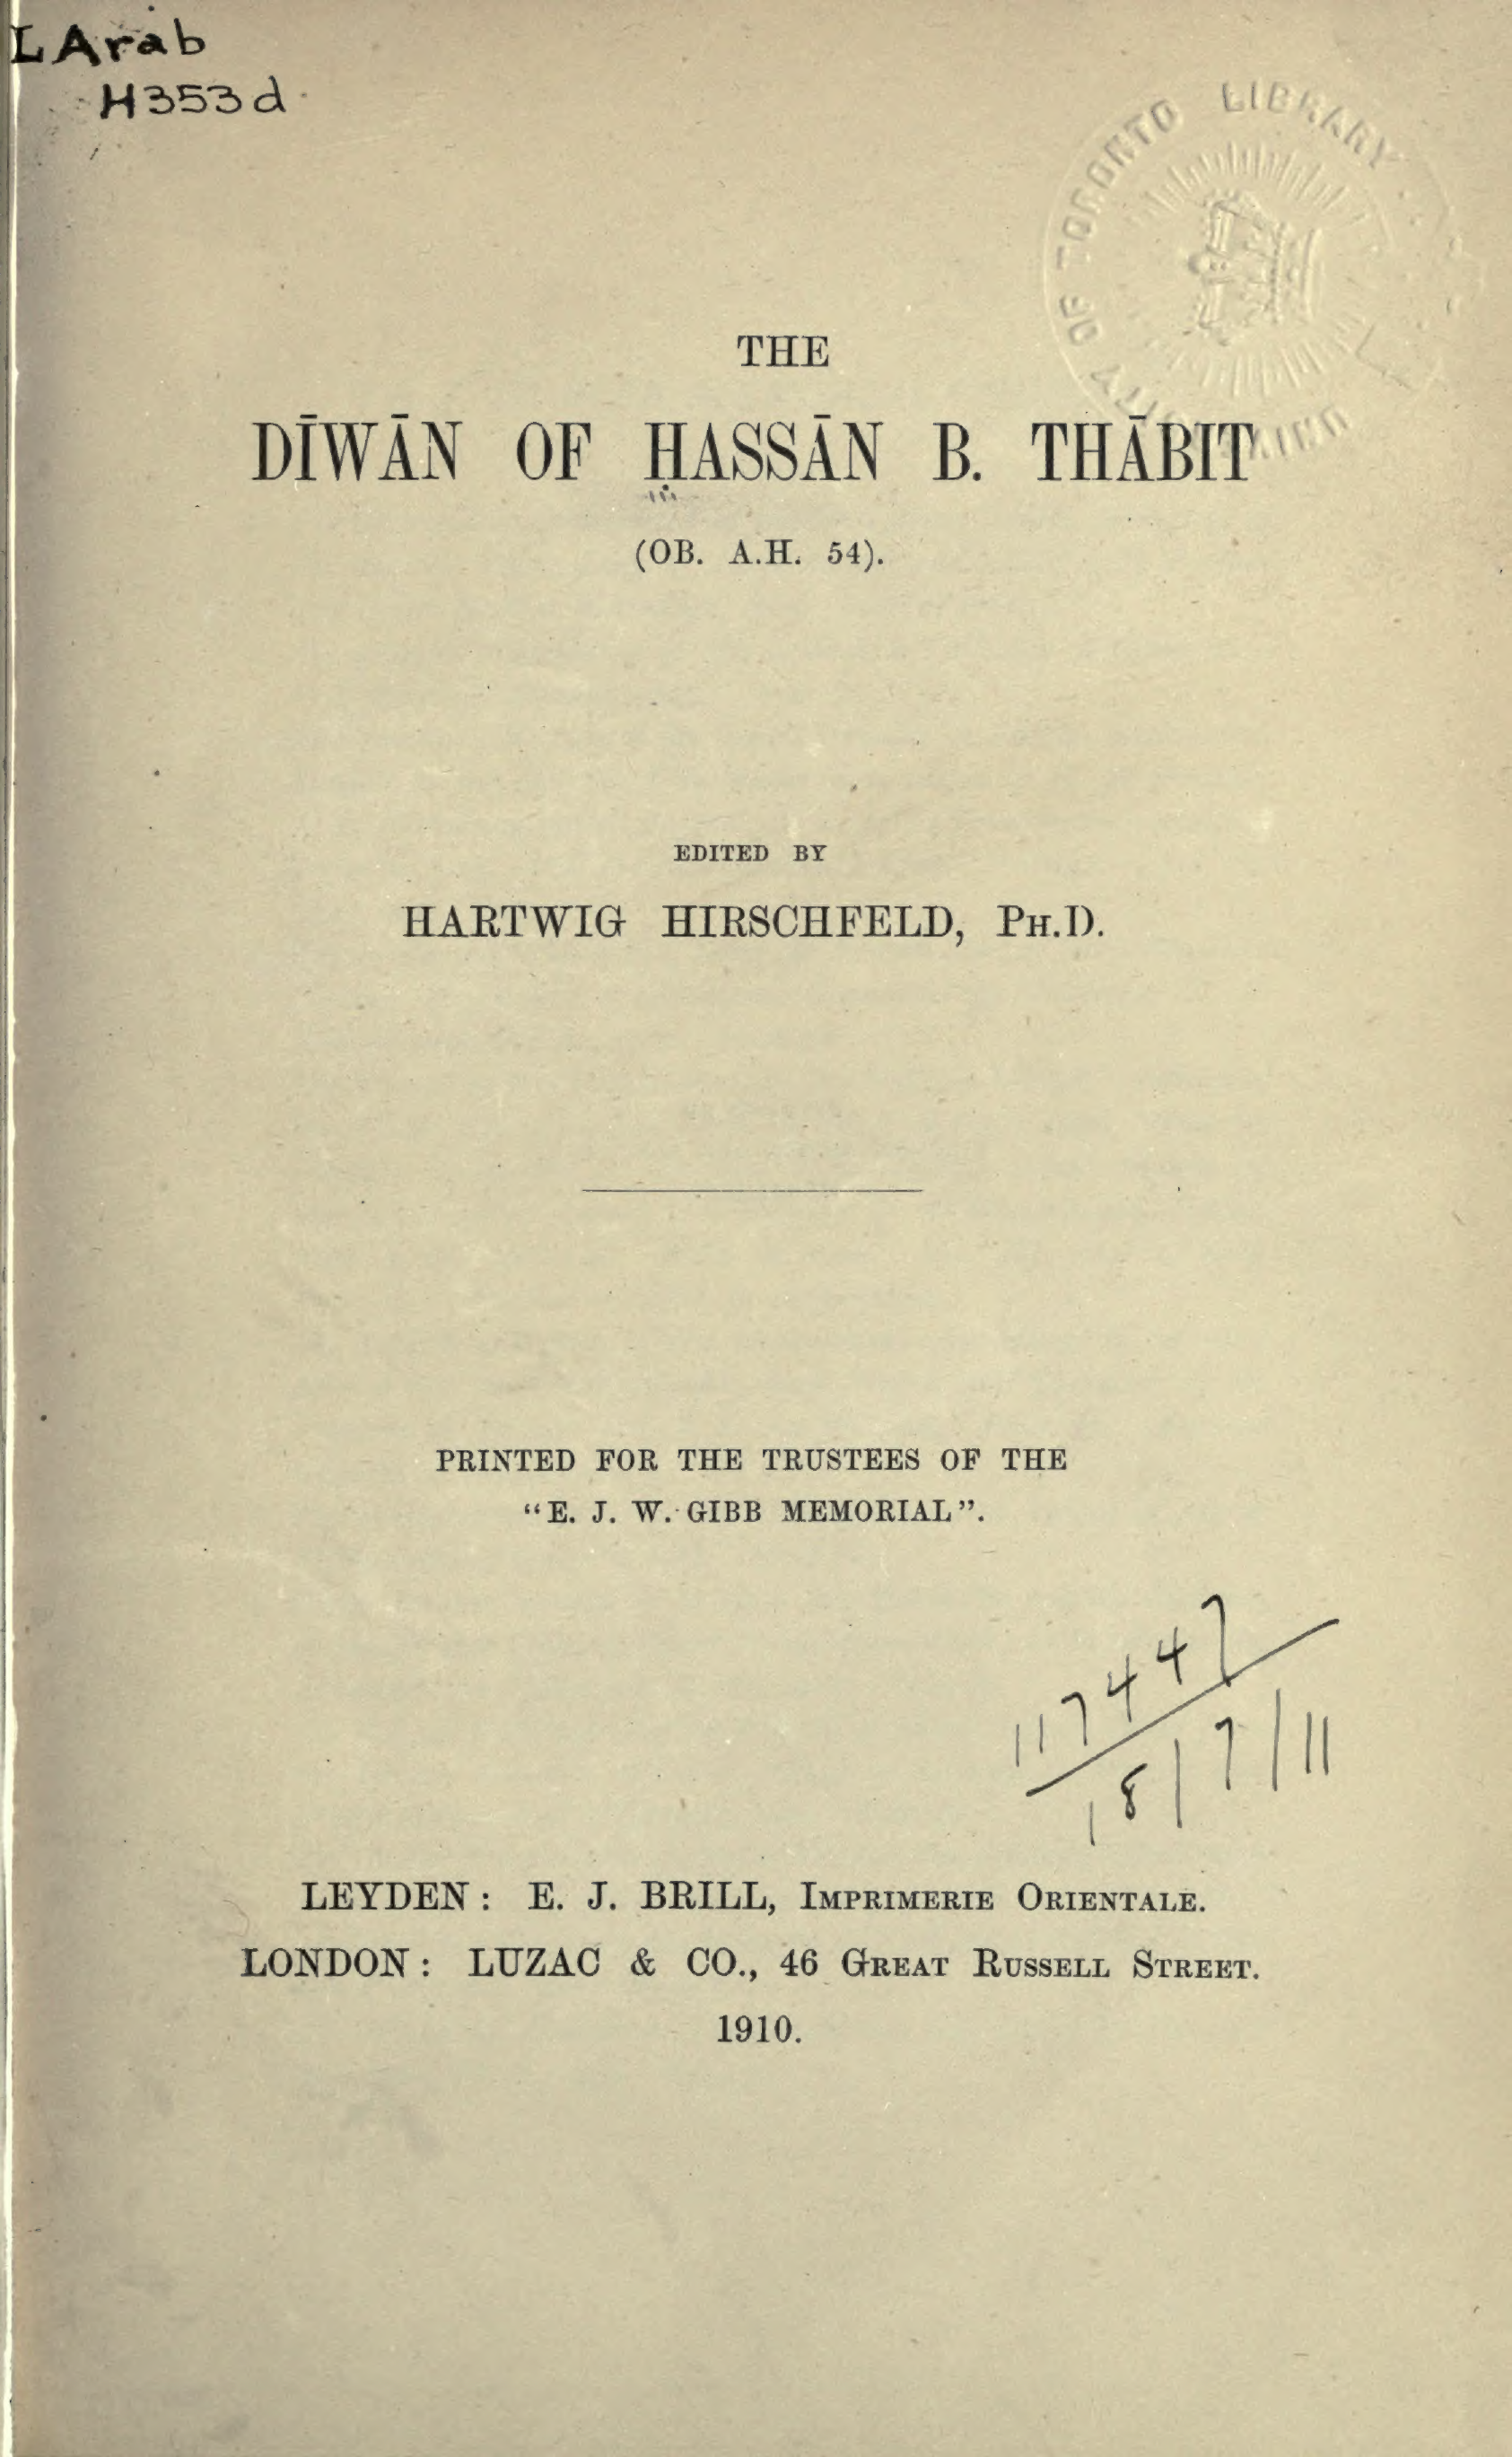 LArab
H353d
LIBRARY
OF TORONTO
THE
DĪWĀN OF ḤASSĀN B. THĀBIT
(OB. A.H. 54).
EDITED BY
HARTWIG HIRSCHFELD, PH.D.
PRINTED FOR THE TRUSTEES OF THE
“E. J. W. GIBB MEMORIAL”.
117447
18/7/11
LEYDEN: E. J. BRILL, IMPRIMERIE ORIENTALE.
LONDON: LUZAC & CO., 46 GREAT RUSSELL STREET.
1910.